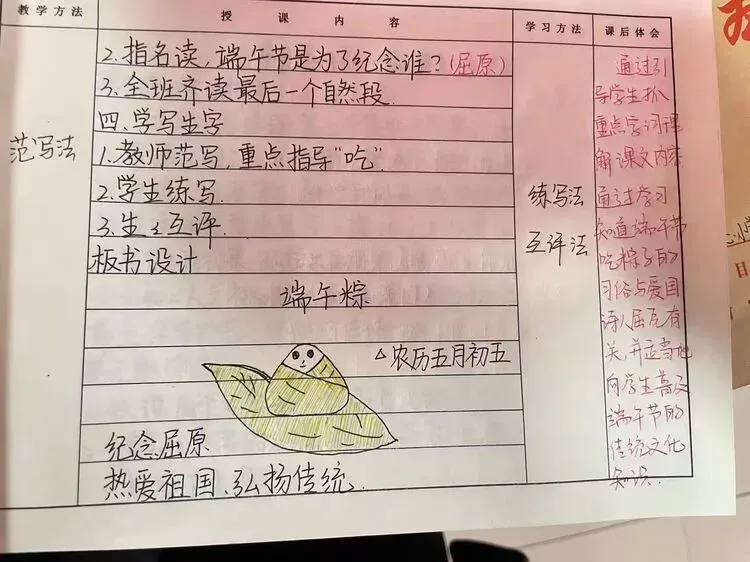 教学方法 授课内容 学习方法 课后体会
2.指名读,端午节是为了纪念谁?(屈原)
3.全班齐读最后一个自然段.
四.学写生字
范写法
1.教师范写,重点指导"吃".
2.学生练写.
3.生生互评.
板书设计
端午粽
△农历五月初五
纪念屈原
热爱祖国、弘扬传统.
练写法
互评法
通过引
导学生抓
重点字词理
解课文内容
通过学习
知道端午节
吃粽子的
习俗与爱国
诗人屈原有
关,并适当地
向学生普及
端午节的
传统文化
知识.